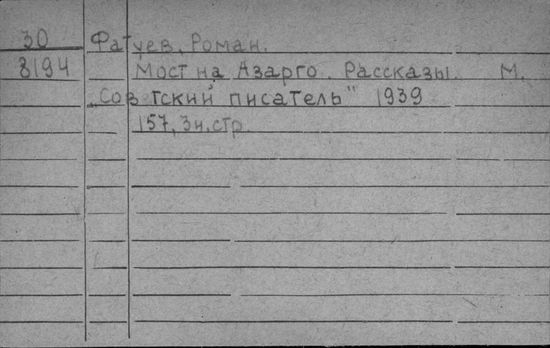 30 Фатуев, Роман.
8194 Мост на Азарго. Рассказы. М.
„Советский писатель" 1939
157, 3 н. стр.